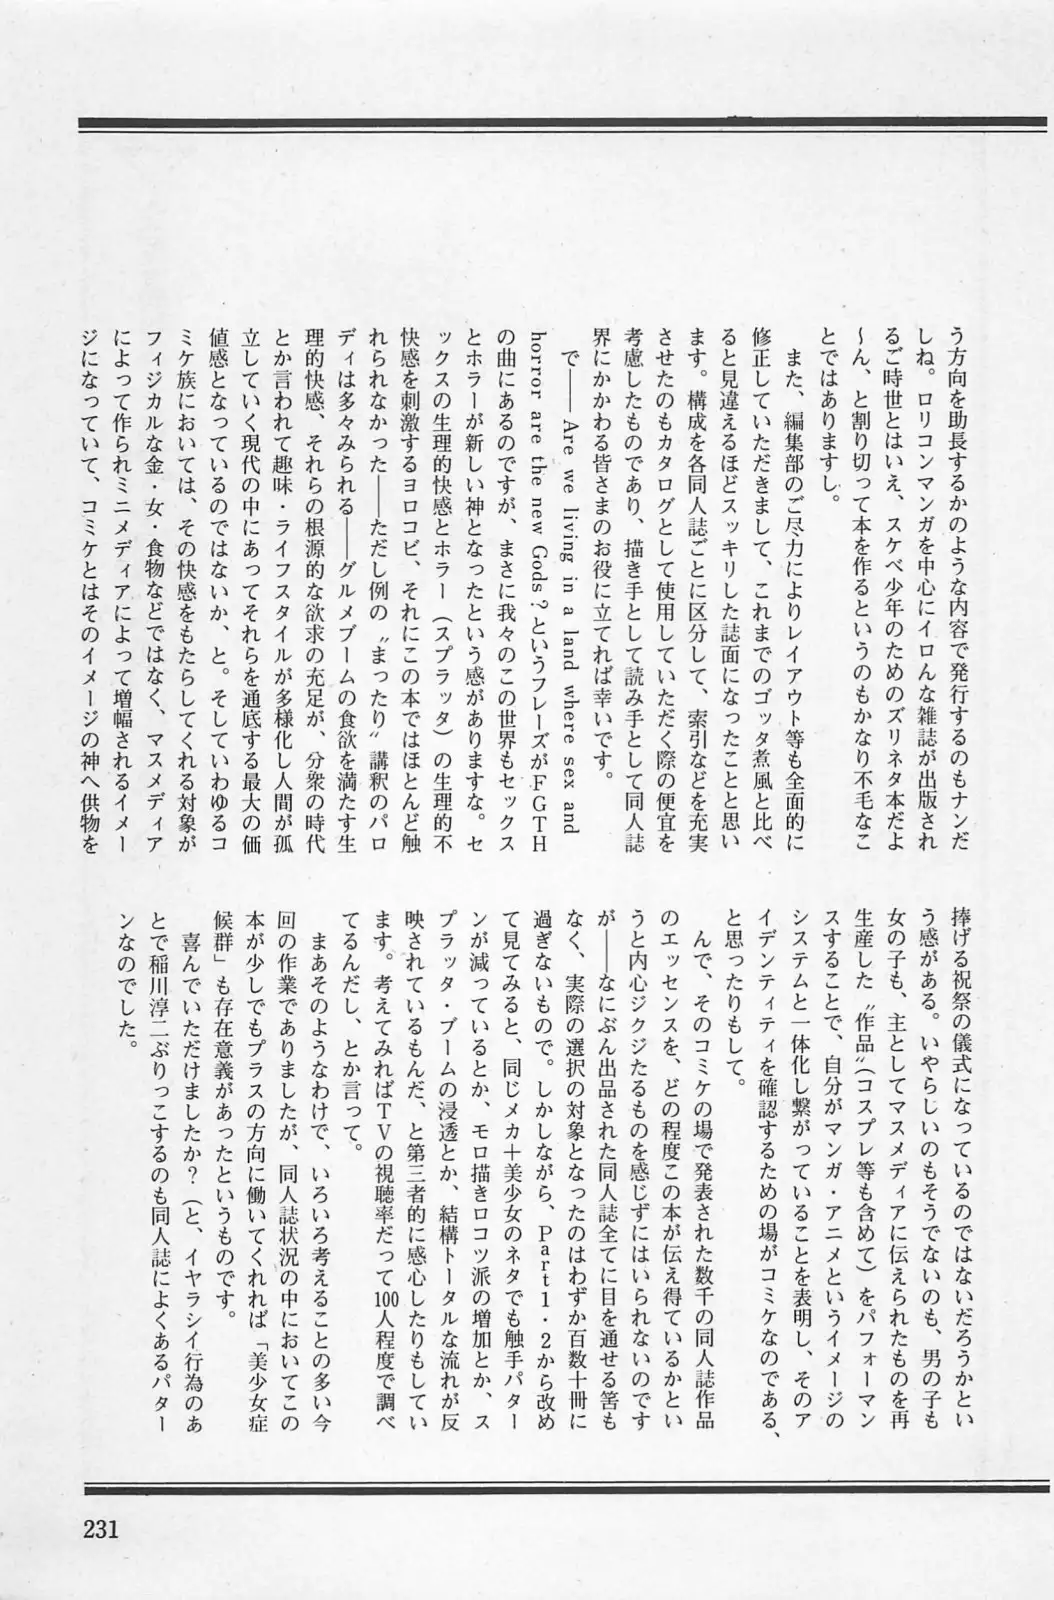 う方向を助長するかのような内容で発行するのもナンだ
しね。ロリコンマンガを中心にイロんな雑誌が出版され
るご時世とはいえ、スケベ少年のためのズリネタ本だよ
〜ん、と割り切って本を作るというのもかなり不毛なこ
とではありますし。
また、編集部のご尽力によりレイアウト等も全面的に
修正していただきまして、これまでのゴッタ煮風と比べ
ると見違えるほどスッキリした誌面になったことと思い
ます。構成を各同人誌ごとに区分して、索引などを充実
させたのもカタログとして使用していただく際の便宜を
考慮したものであり、描き手として読み手として同人誌
界にかかわる皆さまのお役に立てれば幸いです。
で――Are we living in a land where sex and
horror are the new Gods?というフレーズがFGTH
の曲にあるのですが、まさに我々のこの世界もセックス
とホラーが新しい神となったという感がありますな。セ
ックスの生理的快感とホラー（スプラッタ）の生理的不
快感を刺激するヨロコビ、それにこの本ではほとんど触
れられなかった――ただし例の〝まったり〟講釈のパロ
ディは多々みられる――グルメブームの食欲を満たす生
理的快感、それらの根源的な欲求の充足が、分衆の時代
とか言われて趣味・ライフスタイルが多様化し人間が孤
立していく現代の中にあってそれらを通底する最大の価
値感となっているのではないか、と。そしていわゆるコ
ミケ族においては、その快感をもたらしてくれる対象が
フィジカルな金・女・食物などではなく、マスメディア
によって作られミニメディアによって増幅されるイメー
ジになっていて、コミケとはそのイメージの神へ供物を
捧げる祝祭の儀式になっているのではないだろうかとい
う感がある。いやらじいのもそうでないのも、男の子も
女の子も、主としてマスメディアに伝えられたものを再
生産した〝作品〟（コスプレ等も含めて）をパフォーマン
スすることで、自分がマンガ・アニメというイメージの
システムと一体化し繋がっていることを表明し、そのア
イデンティティを確認するための場がコミケなのである、
と思ったりもして。
んで、そのコミケの場で発表された数千の同人誌作品
のエッセンスを、どの程度この本が伝え得ているかとい
うと内心ジクジたるものを感じずにはいられないのです
が――なにぶん出品された同人誌全てに目を通せる筈も
なく、実際の選択の対象となったのはわずか百数十冊に
過ぎないもので。しかしながら、Part1・2から改め
て見てみると、同じメカ＋美少女のネタでも触手パター
ンが減っているとか、モロ描きロコツ派の増加とか、ス
プラッタ・ブームの浸透とか、結構トータルな流れが反
映されているもんだ、と第三者的に感心したりもしてい
ます。考えてみればTVの視聴率だって100人程度で調べ
てるんだし、とか言って。
まあそのようなわけで、いろいろ考えることの多い今
回の作業でありましたが、同人誌状況の中においてこの
本が少しでもプラスの方向に働いてくれれば「美少女症
候群」も存在意義があったというものです。
喜んでいただけましたか？（と、イヤラシイ行為のあ
とで稲川淳二ぶりっこするのも同人誌によくあるパター
ンなのでした。
231